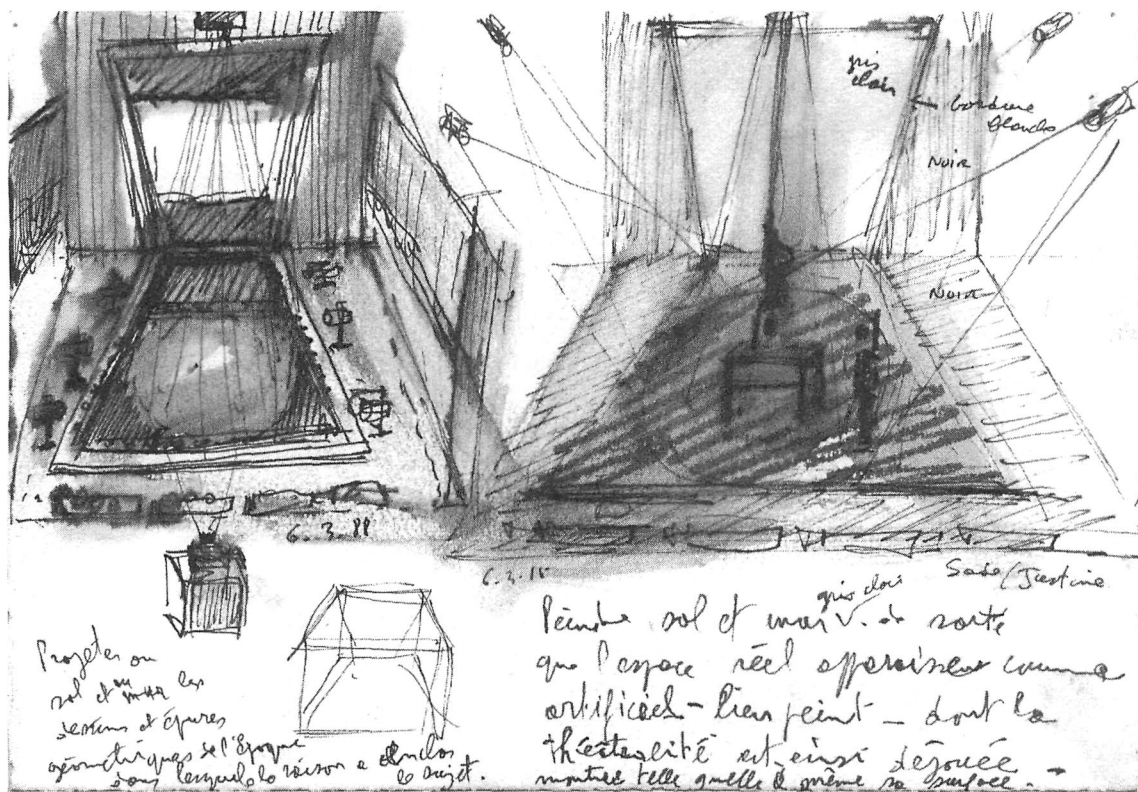 gris
clair
← bordure
blanche
NOIR
NOIR
6.3.88
6.3.88
Sade/Justine
Projeter au
sol et au mur les
dessins et épures
géométriques de l'Époque
dans lesquels la raison a enclos
le sujet.
gris clair
Peindre sol et mur V. de sorte
que l'espace réel apparaisse comme
artificiel - lieu peint - dont la
théâtralité est ainsi déjouée
montrée telle quelle à même sa surface. -